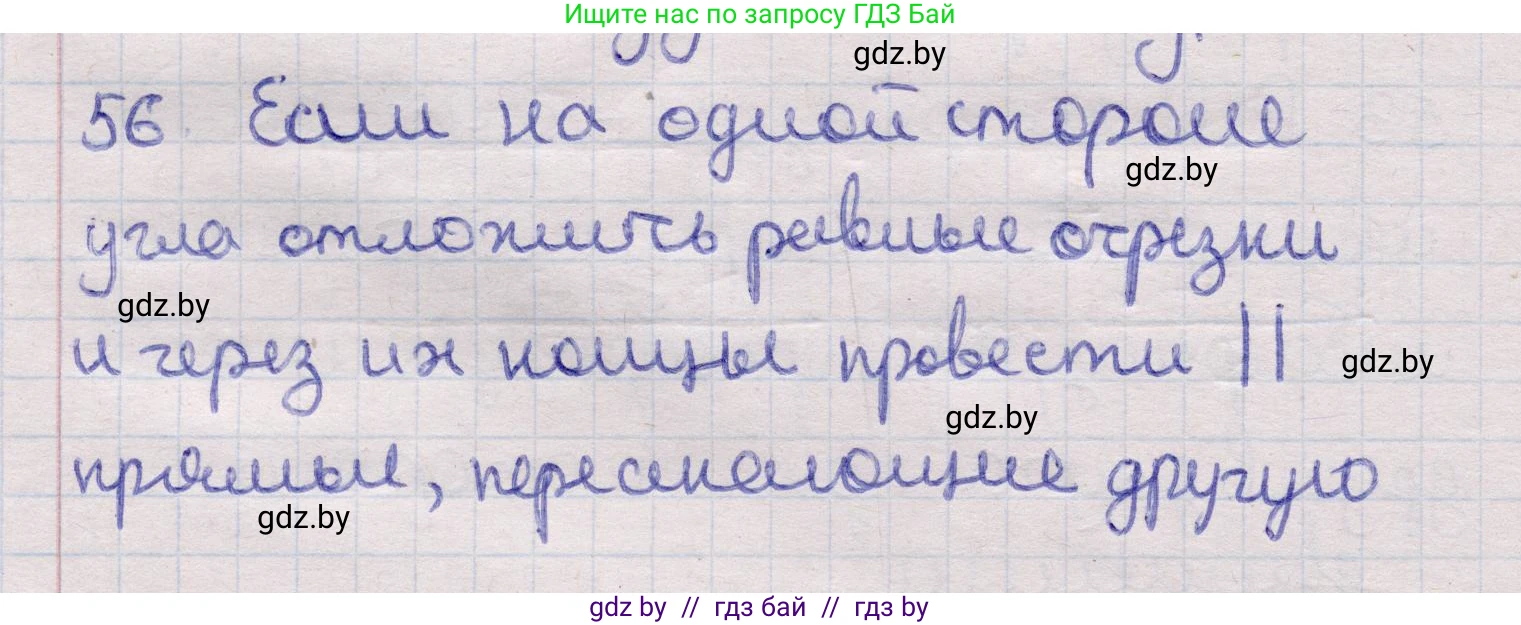 Ищите нас по запросу ГДЗ Бай
gdz.by
56. Если на одной стороне
gdz.by
угла отложить равные отрезки
gdz.by
и через их концы провести ||
gdz.by
gdz.by
прямые, пересекающие другую
gdz.by
gdz by // гдз бай // гдз by